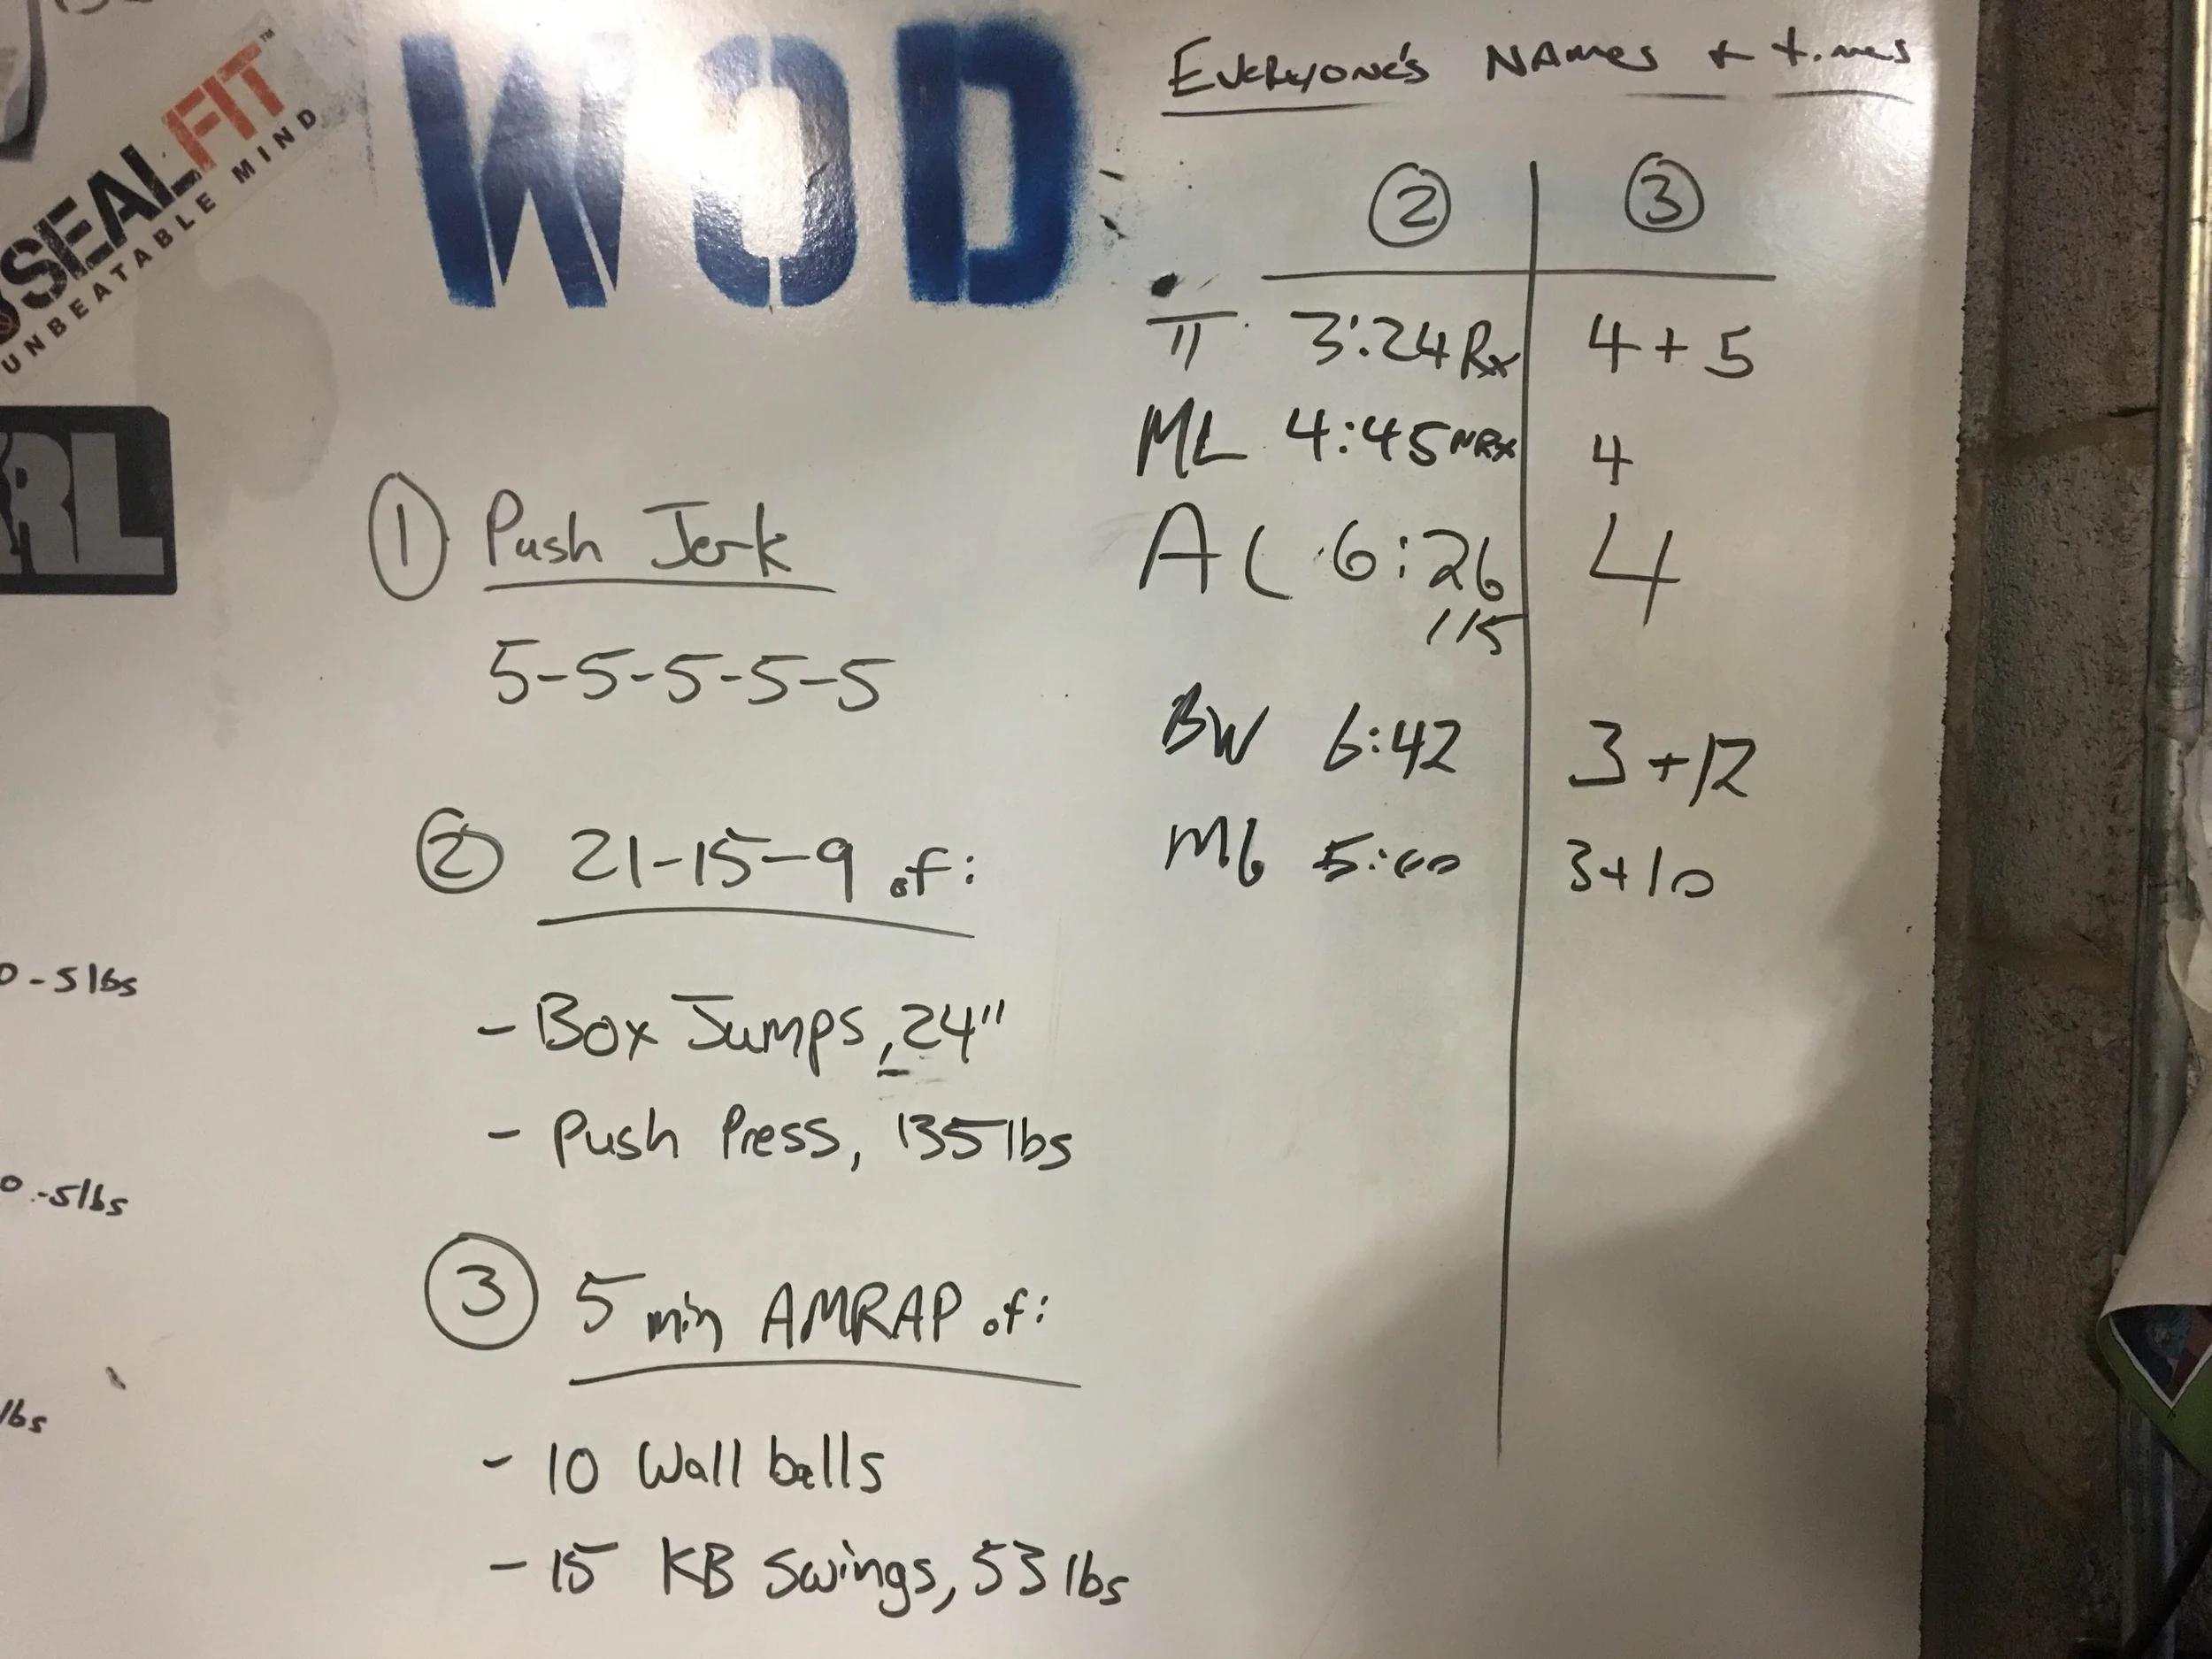 SEALFIT™
UNBEATABLE MIND
RL
WOD
① Push Jerk
5-5-5-5-5
② 21-15-9 of:
- Box Jumps, 24"
- Push Press, 135 lbs
③ 5 min AMRAP of:
- 10 Wall balls
- 15 KB Swings, 53 lbs
Everyone's Names + times
② ③
3:24 Rx 4 + 5
ML 4:45 NRx 4
AC 6:26 4
115
BW 6:42 3 + 12
MG 5:00 3+10
0 - 5 lbs
0 - 5 lbs
lbs